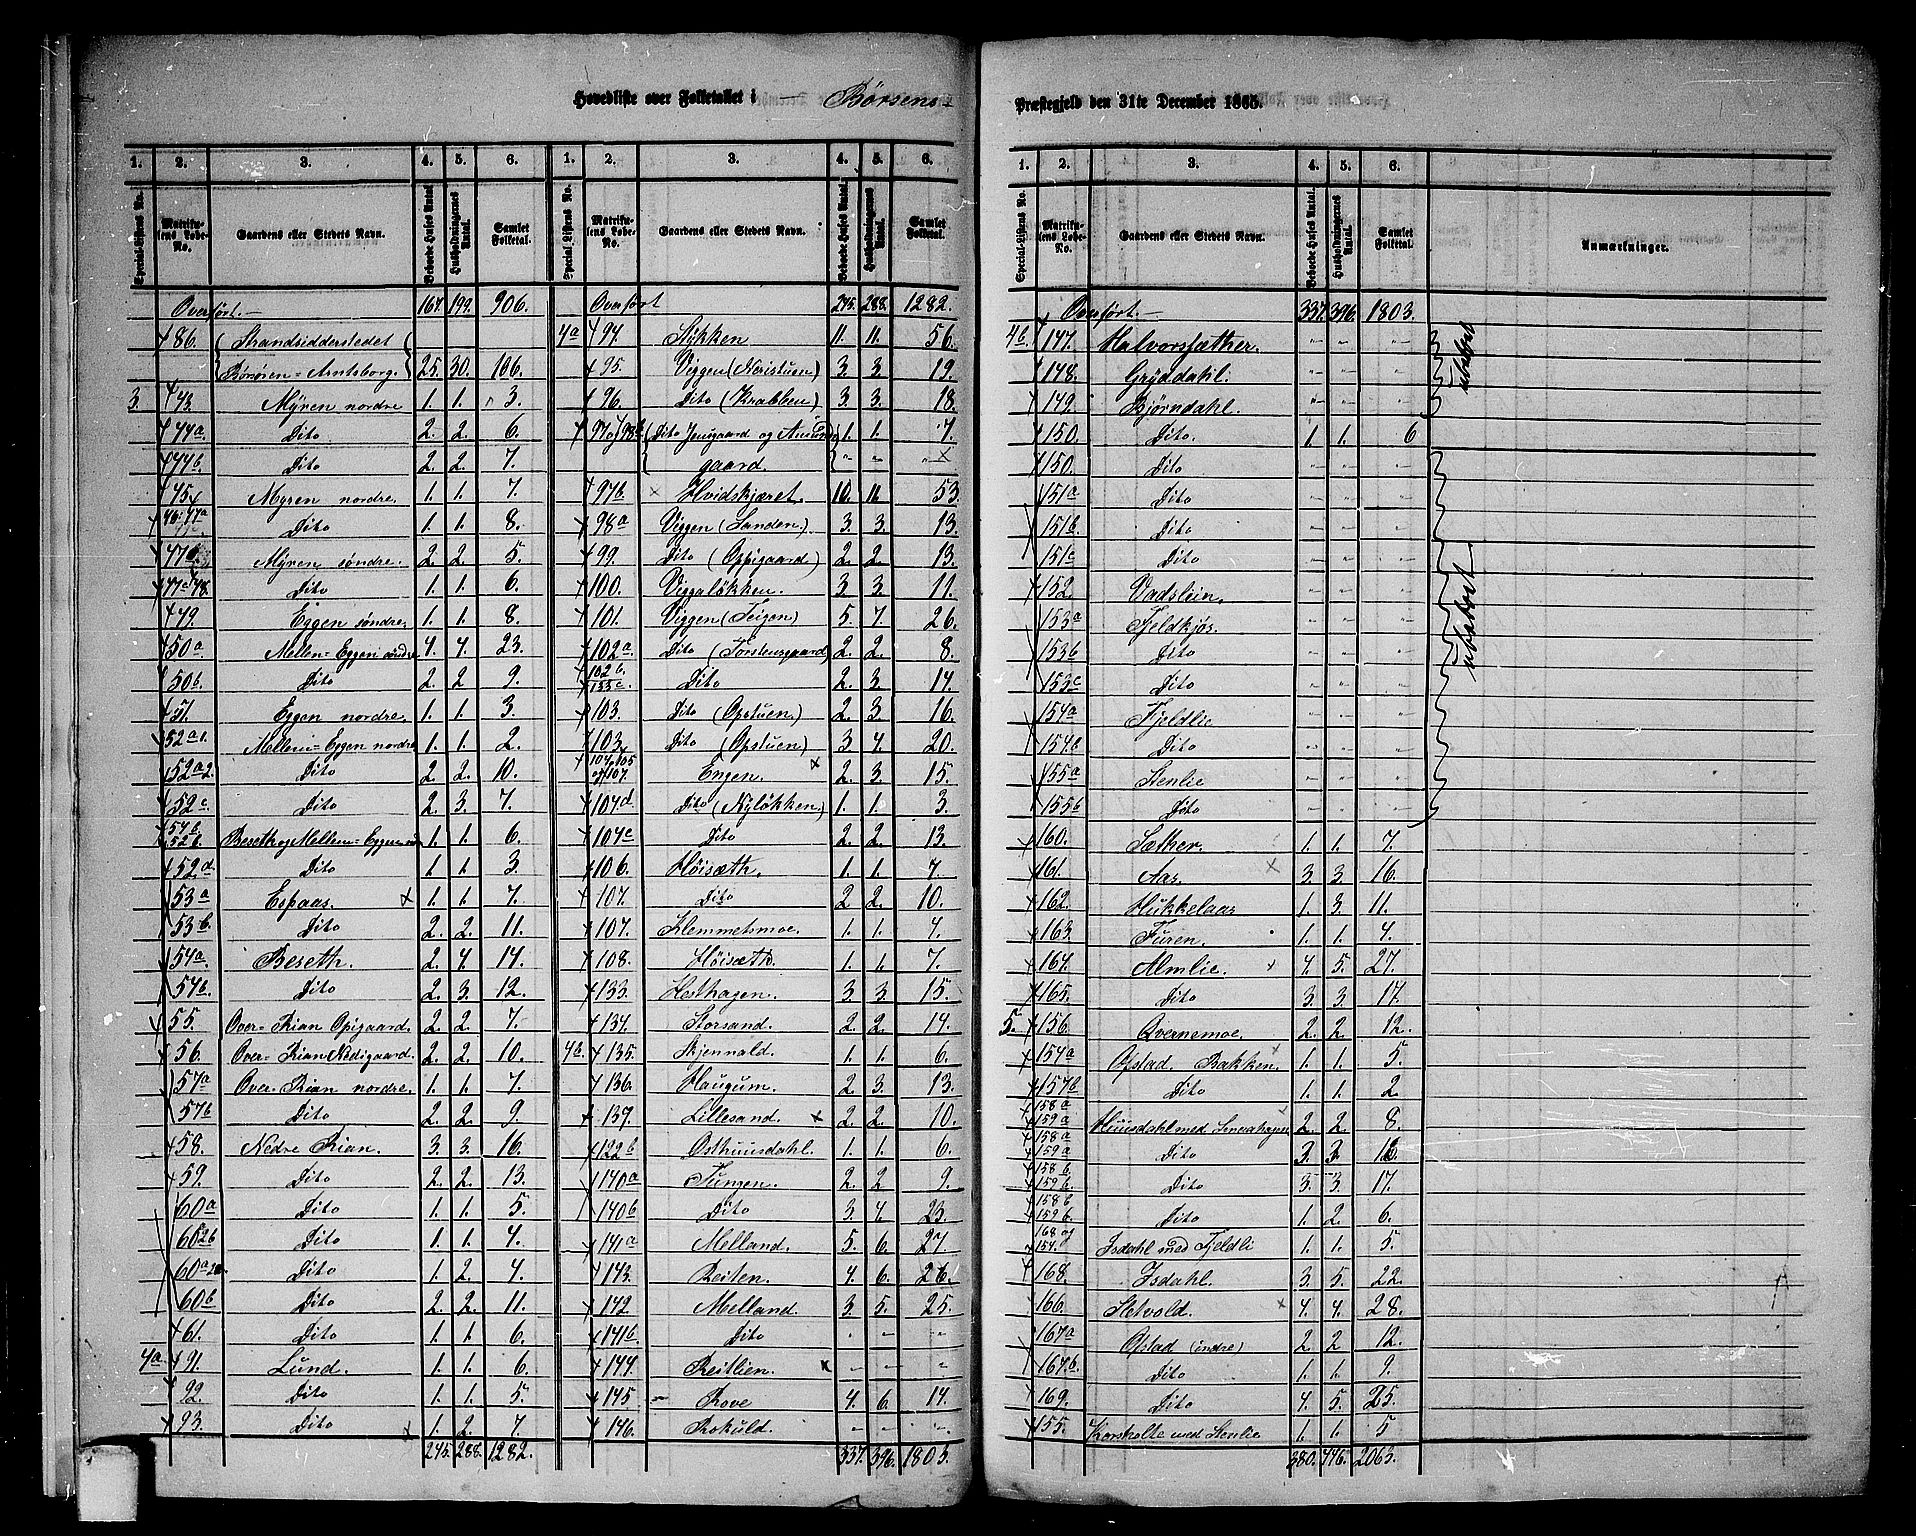 Hovedliste over Folketallet i Børsens Præstegjeld den 31te December 1865.
1. 2. 3. 4. 5. 6. 1. 2. 3. 4. 5. 6.
Special-Listens No. Matrikulens Løbe-No. Gaardens eller Stedets Navn. Beboede Huses Antal. Husholdningernes Antal. Samlet Folketal.
Overført 167. 199. 906.
86. Strandsidderstedet
Børsøren=Arntsborg. 25. 30. 106.
3. 43. Myren nordre 1. 1. 3.
44a Dito 2. 2. 6.
44b. Dito 2. 2. 7.
45 Myren nordre. 1. 1. 7.
46. 47a Dito 1. 1. 8.
47b. Myren søndre. 2. 2. 5.
Dito 1. 1. 6.
49. Eggen søndre. 1. 1. 8.
50a Mellem=Eggen søndre 4. 4. 23.
50b. Dito 2. 2 9.
51. Eggen nordre. 1. 1. 3.
52a1. Mellem=Eggen nordre 1. 1. 2.
52a2. Dito 2. 2. 10.
52c Dito 2. 3. 7.
54b. 52b. Beseth og Mellem=Eggen 1. 1. 6.
52d Dito 1. 1. 3.
53a Espaas. 1. 1. 7.
53b. Dito 2. 2. 11.
54a. Beseth. 2. 4. 14.
54b. Dito 2. 3. 12.
55. Over-Rian Opigaard. 2. 2. 7.
56. Over-Rian Nedigaard. 2. 2. 10.
57a Over-Rian nordre. 1. 1. 7.
57b Dito 2. 2. 9.
58. Nedre Rian. 3. 3. 16.
59. Dito 2. 2. 13.
60a Dito 1. 1. 5.
Dito 1. 1. 4.
Dito 1. 2. 4.
60b Dito 2. 2. 11.
61. Dito 1. 1. 6.
4a 91. Lund. 1. 1. 6.
92. Dito 1. 1. 5.
93. Dito 1. 2. 7.
245. 288. 1282.
Overført 245. 288. 1282.
4a 94. Stykken 11. 11. 56.
95. Viggen (Neristuen) 3. 3. 19.
96. Dito (Krabben) 3. 3. 18.
Dito Jensgaard og Amunds 1. 1. 7.
gaard. " " "
97b. Hvidskjæret. 10. 11. 53.
98a Viggen (Sanden.) 3. 3. 13.
99. Dito (Oppigaard) 2. 2. 13.
100. Viggaløkken. 3. 3. 11.
101. Viggen (Teigen) 5. 7. 26.
102a Dito (Torstensgaard) 2. 2. 8.
102b. 133c. Dito 2. 3. 14.
103. Dito (Opstuen.) 2. 3. 16.
103. Dito (Opstuen) 3. 4. 20.
104, 105 og 107. Engen. 2. 3. 15.
104d Dito (Nyløkken) 1. 1. 3.
104c Dito 2. 2. 13.
106. Høisæth. 1. 1. 7.
107. Dito 2 2. 10.
107. Klemmetsmoe. 1. 1. 4.
108. Høisæth. 1. 1. 7.
133. Hesthagen. 3. 3. 15.
134. Storsand. 2. 2. 14.
4b 135. Skjennald. 1. 1. 6.
136. Haugum. 2. 3. 13.
137. Lillesand. 2. 2. 10.
122b Osthuusdahl. 1. 1. 6.
140a Tungen. 2. 2 9.
140b Dito 3. 4. 23.
141a Melland. 5. 6. 27.
143. Reiten. 4. 6. 26.
142. Melland. 3. 5. 25.
141b. Dito " " "
144. Reitlien. " " "
145 Rove 4. 6. 14.
146. Rokuld. " " "
337. 396. 1803.
1. 2. 3. 4. 5. 6.
Special-Listens No. Matrikulens Løbe-No. Gaardens eller Stedets Navn. Beboede Huses Antal. Husholdningernes Antal. Samlet Folketal. Anmærkninger.
Overført 337. 396. 1803.
4b 147. Halvorsæther. " " " ubeboet
148. Gryddahl. " " "
149. Bjørndahl. " " "
150. Dito. 1. 1. 6
150. Dito " " "
151a Dito " " "
151b. Dito " " "
151c Dito " " "
152. Vadslein. " " "
153a Fjeldkjøs. " " " ubeboet
153b Dito " " "
153c Dito " " "
154a Fjeldlie " " "
154b Dito " " "
155a Stenlie " " "
155b Dito " " "
160. Sæther. 1. 1. 7.
161. Aas. 3. 3. 16.
162. Hukkelaas 1. 3. 11.
163. Furen. 1. 1. 4.
164. Almlie. 4. 5. 27.
165. Dito 3. 3. 17.
5. 156. Qvernemoe. 2. 2. 12.
157a Ofstad Bakken. 1. 1. 5.
157b Dito 1. 1. 2.
158a 159a Huusdahl med Smaahagen 2. 2. 8.
158a 159a Dito 3. 3. 18.
158b. 159b. Dito 3. 3. 17.
158b 159b. Dito 1. 2. 6.
168 og 154. Isdahl med Fjeldli 1. 1. 5.
168. Isdahl. 3. 5. 22.
166. Setvold. 4. 4. 28.
167a Ofstad (indre) 2. 2 12.
167b. Dito 1. 1. 9.
169. Dito 4. 5. 25.
155. Korsholte med Stenlie 1. 1. 5
380. 446. 2063.